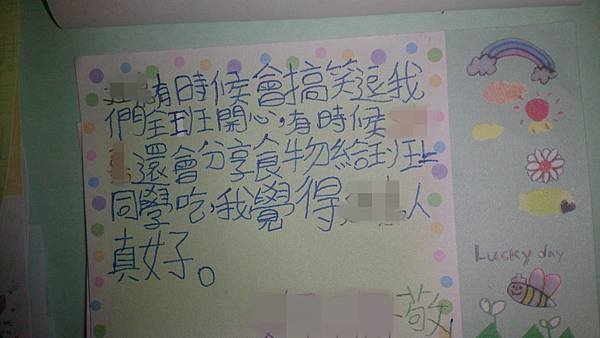 有時候會搞笑逗我
們全班開心,有時候
還會分享食物給班
同學吃,我覺得人
真好。
敬
Lucky day